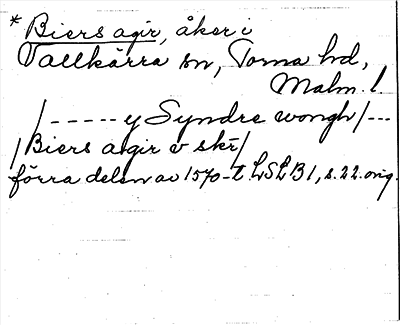 * Biers agir, åker i
Vallkärra sn, Torna hd,
Malm. l.
/ - - - - - y Syndre wongh / - - -
/ Biers agir v skr /
förra delen av 1570-t. LSLB 1, s. 22. orig.